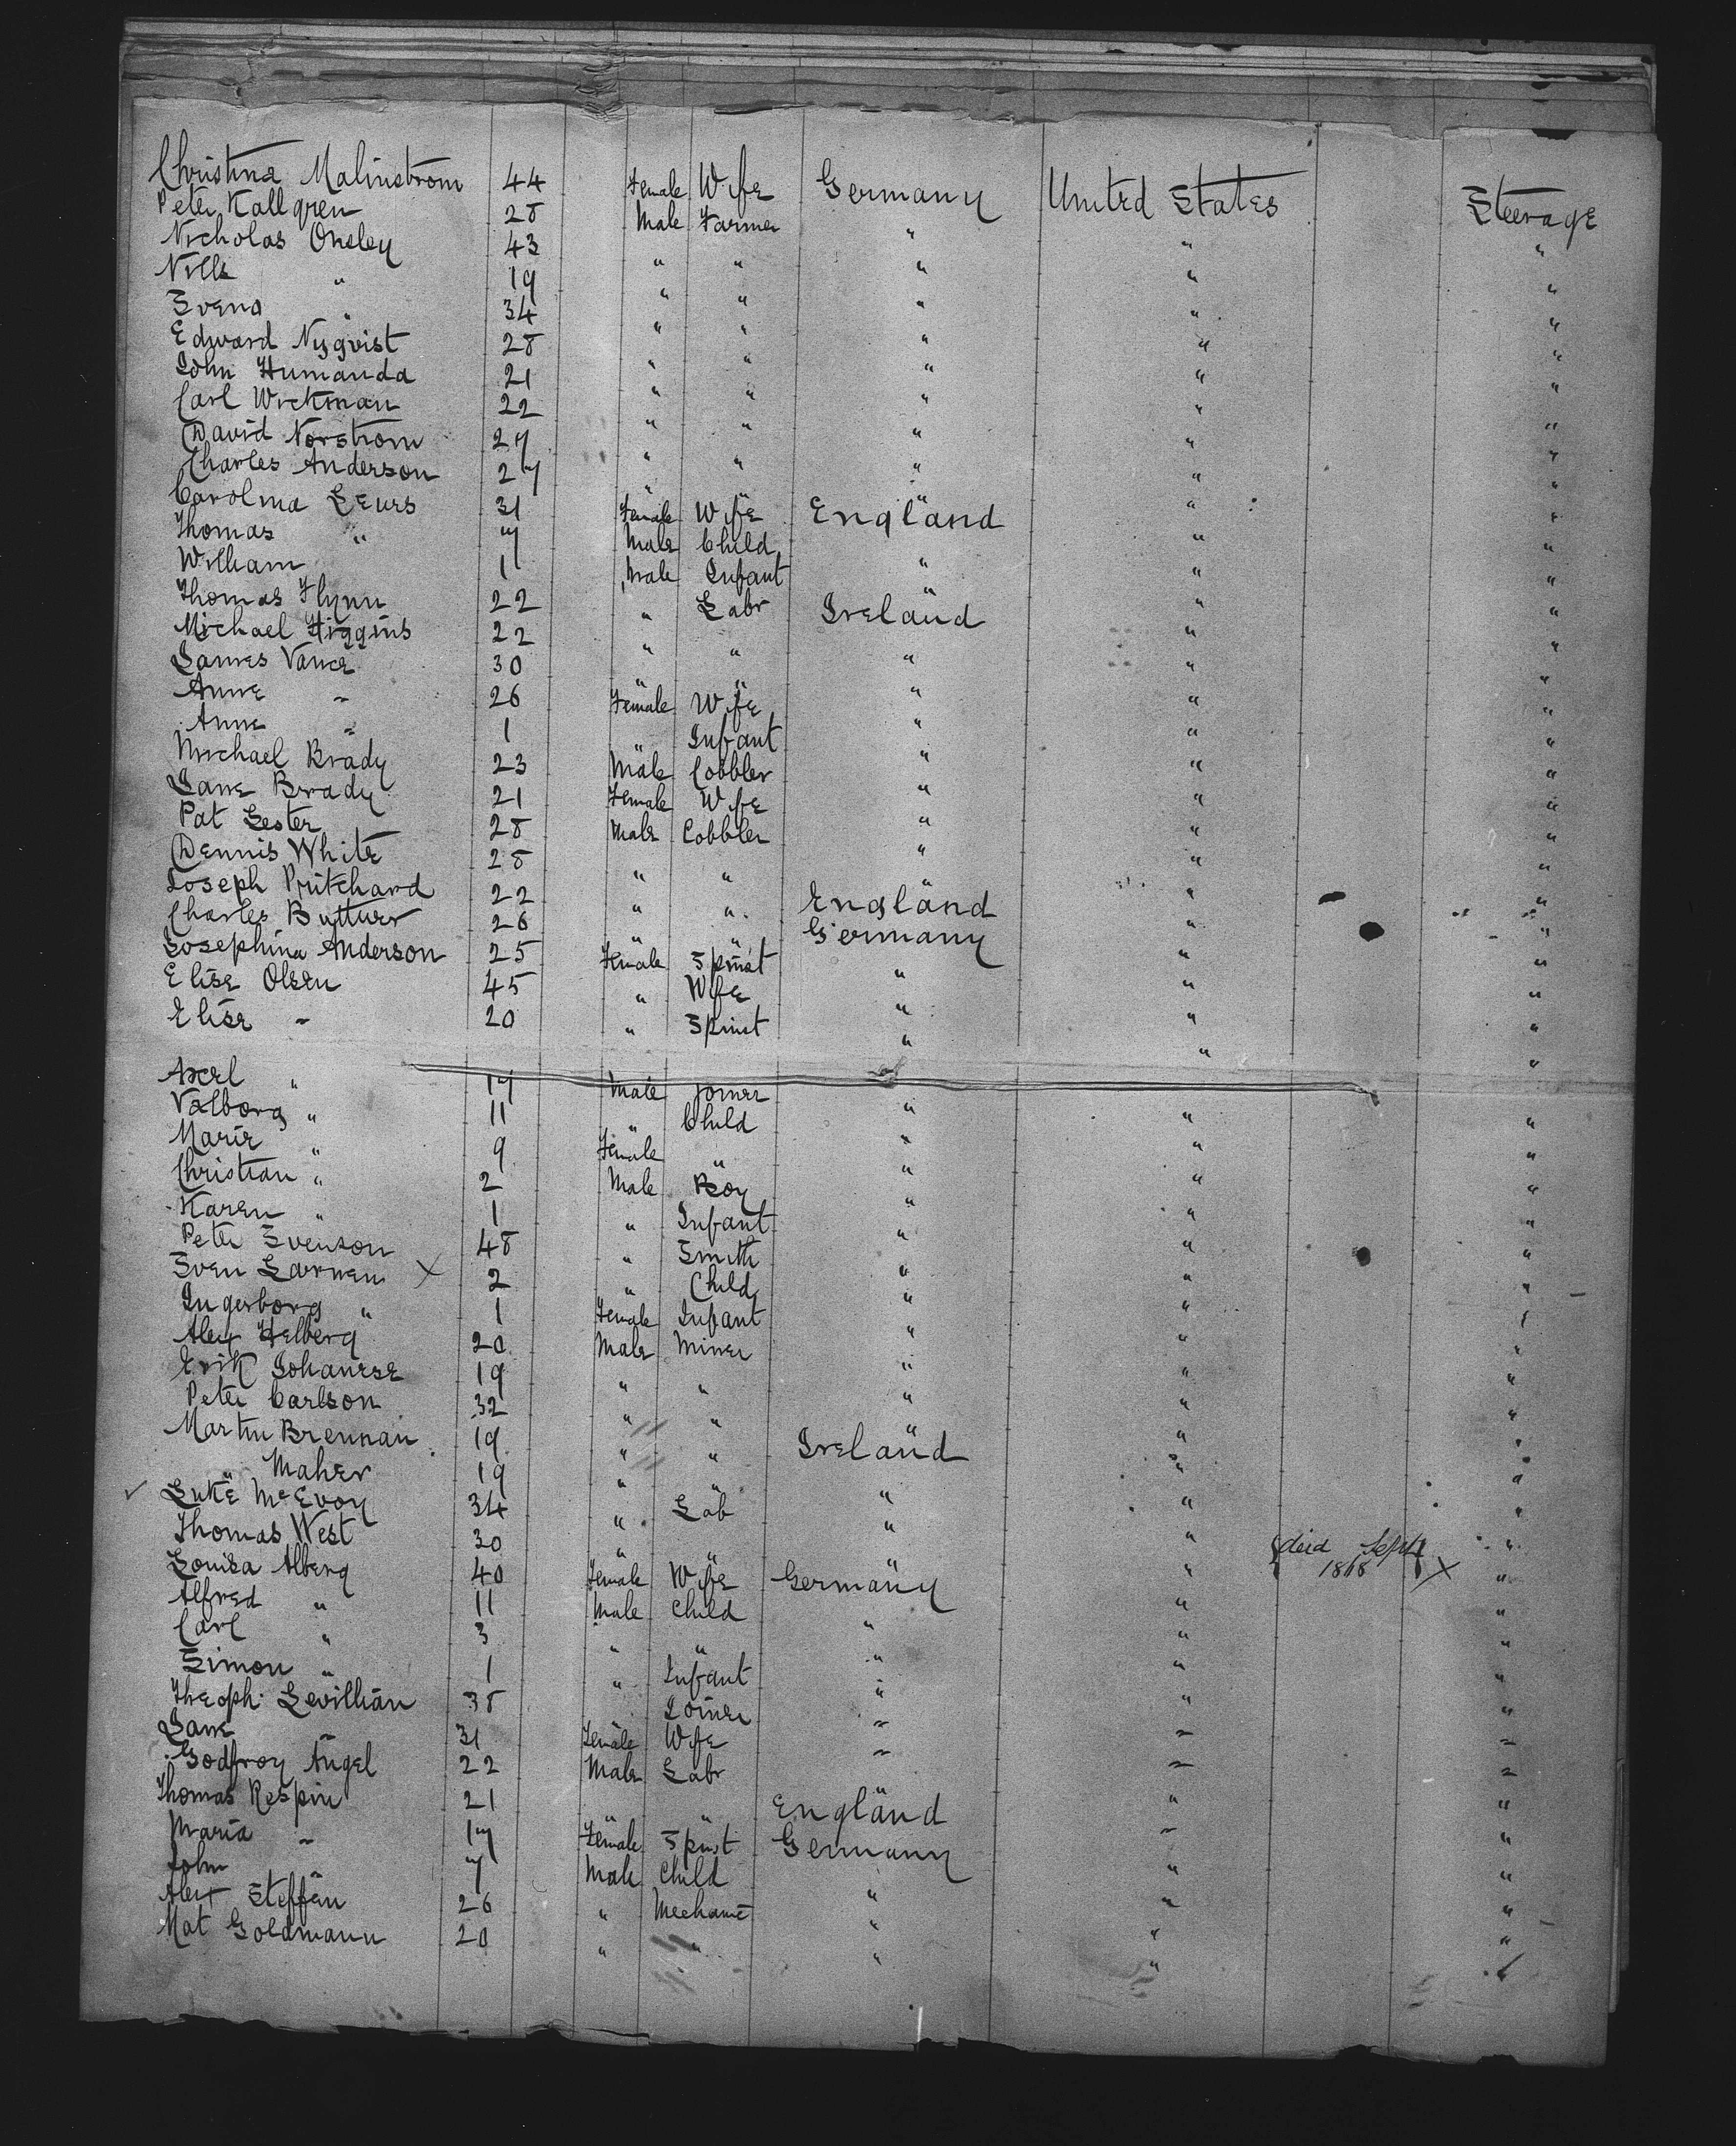 Christina Malmstrom 44 Female Wife Germany United States Steerage
Peter Kallgren 28 Male Farmer " " "
Nicholas Onsley 43 " " " " "
Nills " 19 " " " " "
Svend " 34 " " " " "
Edward Nyqvist 28 " " " " "
John Humanda 21 " " " " "
Carl Wickman 22 " " " " "
David Norstrom 27 " " " " "
Charles Anderson 27 " " " " "
Carolina Leurs 31 Female Wife England " "
Thomas " 7 Male Child " " "
William 11 Male Infant " " "
Thomas Flynn 22 " Labr Ireland " "
Michael Higgins 22 " " " " "
James Vance 30 " " " " "
Anne " 26 Female Wife " " "
Anne " 1 " Infant " " "
Michael Brady 23 Male Cobbler " " "
Jane Brady 21 Female Wife " " "
Pat Lester 28 Male Cobbler " " "
Dennis White 28 " " " " "
Joseph Pritchard 22 " " England " "
Charles Butturr 26 " " Germany " "
Josephina Anderson 25 Female Spinst " " "
Elise Olsen 45 " Wife " " "
Elise " 20 " Spinst " " "
Axel " 17 Male Joiner " " "
Valborg " 11 " Child " " "
Marie " 9 Female " " " "
Christian " 2 Male Boy " " "
Karen " 1 " Infant " " "
Peter Svenson 48 " Smith " " "
Sven Larnen X 2 " Child " " "
Ingerborg " 1 Female Infant " " "
Alex Helberg 20 Male Miner " " "
Erik Johanese 19 " " " " "
Peter Carlson 32 " " " " "
Martin Brennan 19 " " Ireland " "
" Maher 19 " " " " "
✓ Luke McEvoy 34 " Lab " " "
Thomas West 30 " " " " "
Louisa Alberg 40 Female Wife Germany " died Sept 1868 X "
Alfred " 11 Male Child " " "
Carl " 3 " " " " "
Simon " 1 " Infant " " "
Theoph Levillian 38 Joiner " " "
Jane " 31 Female Wife " " "
Godfroy Angel 22 Male Labr " "
Thomas Respin 21 " " England " "
Maria " 17 Female Spinst Germany " "
John 7 Male Child " " "
Alex Steffen 26 " Mechanic " " "
Mat Goldmann 20 " " " " "